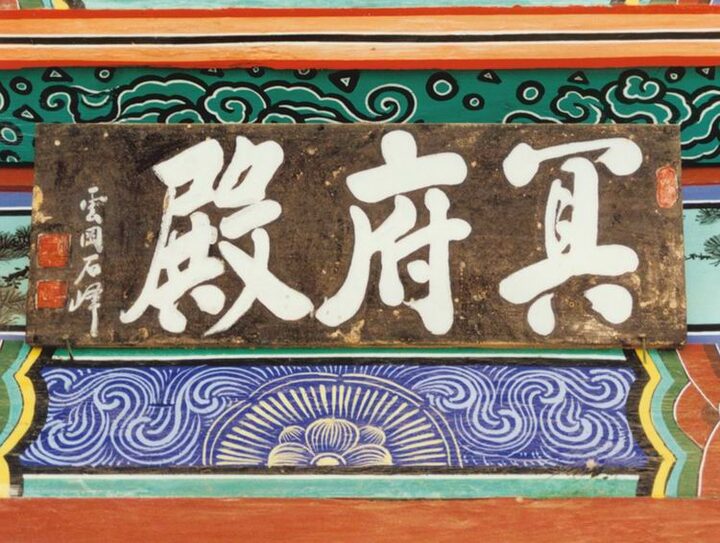 冥府殿
雲岡石峰